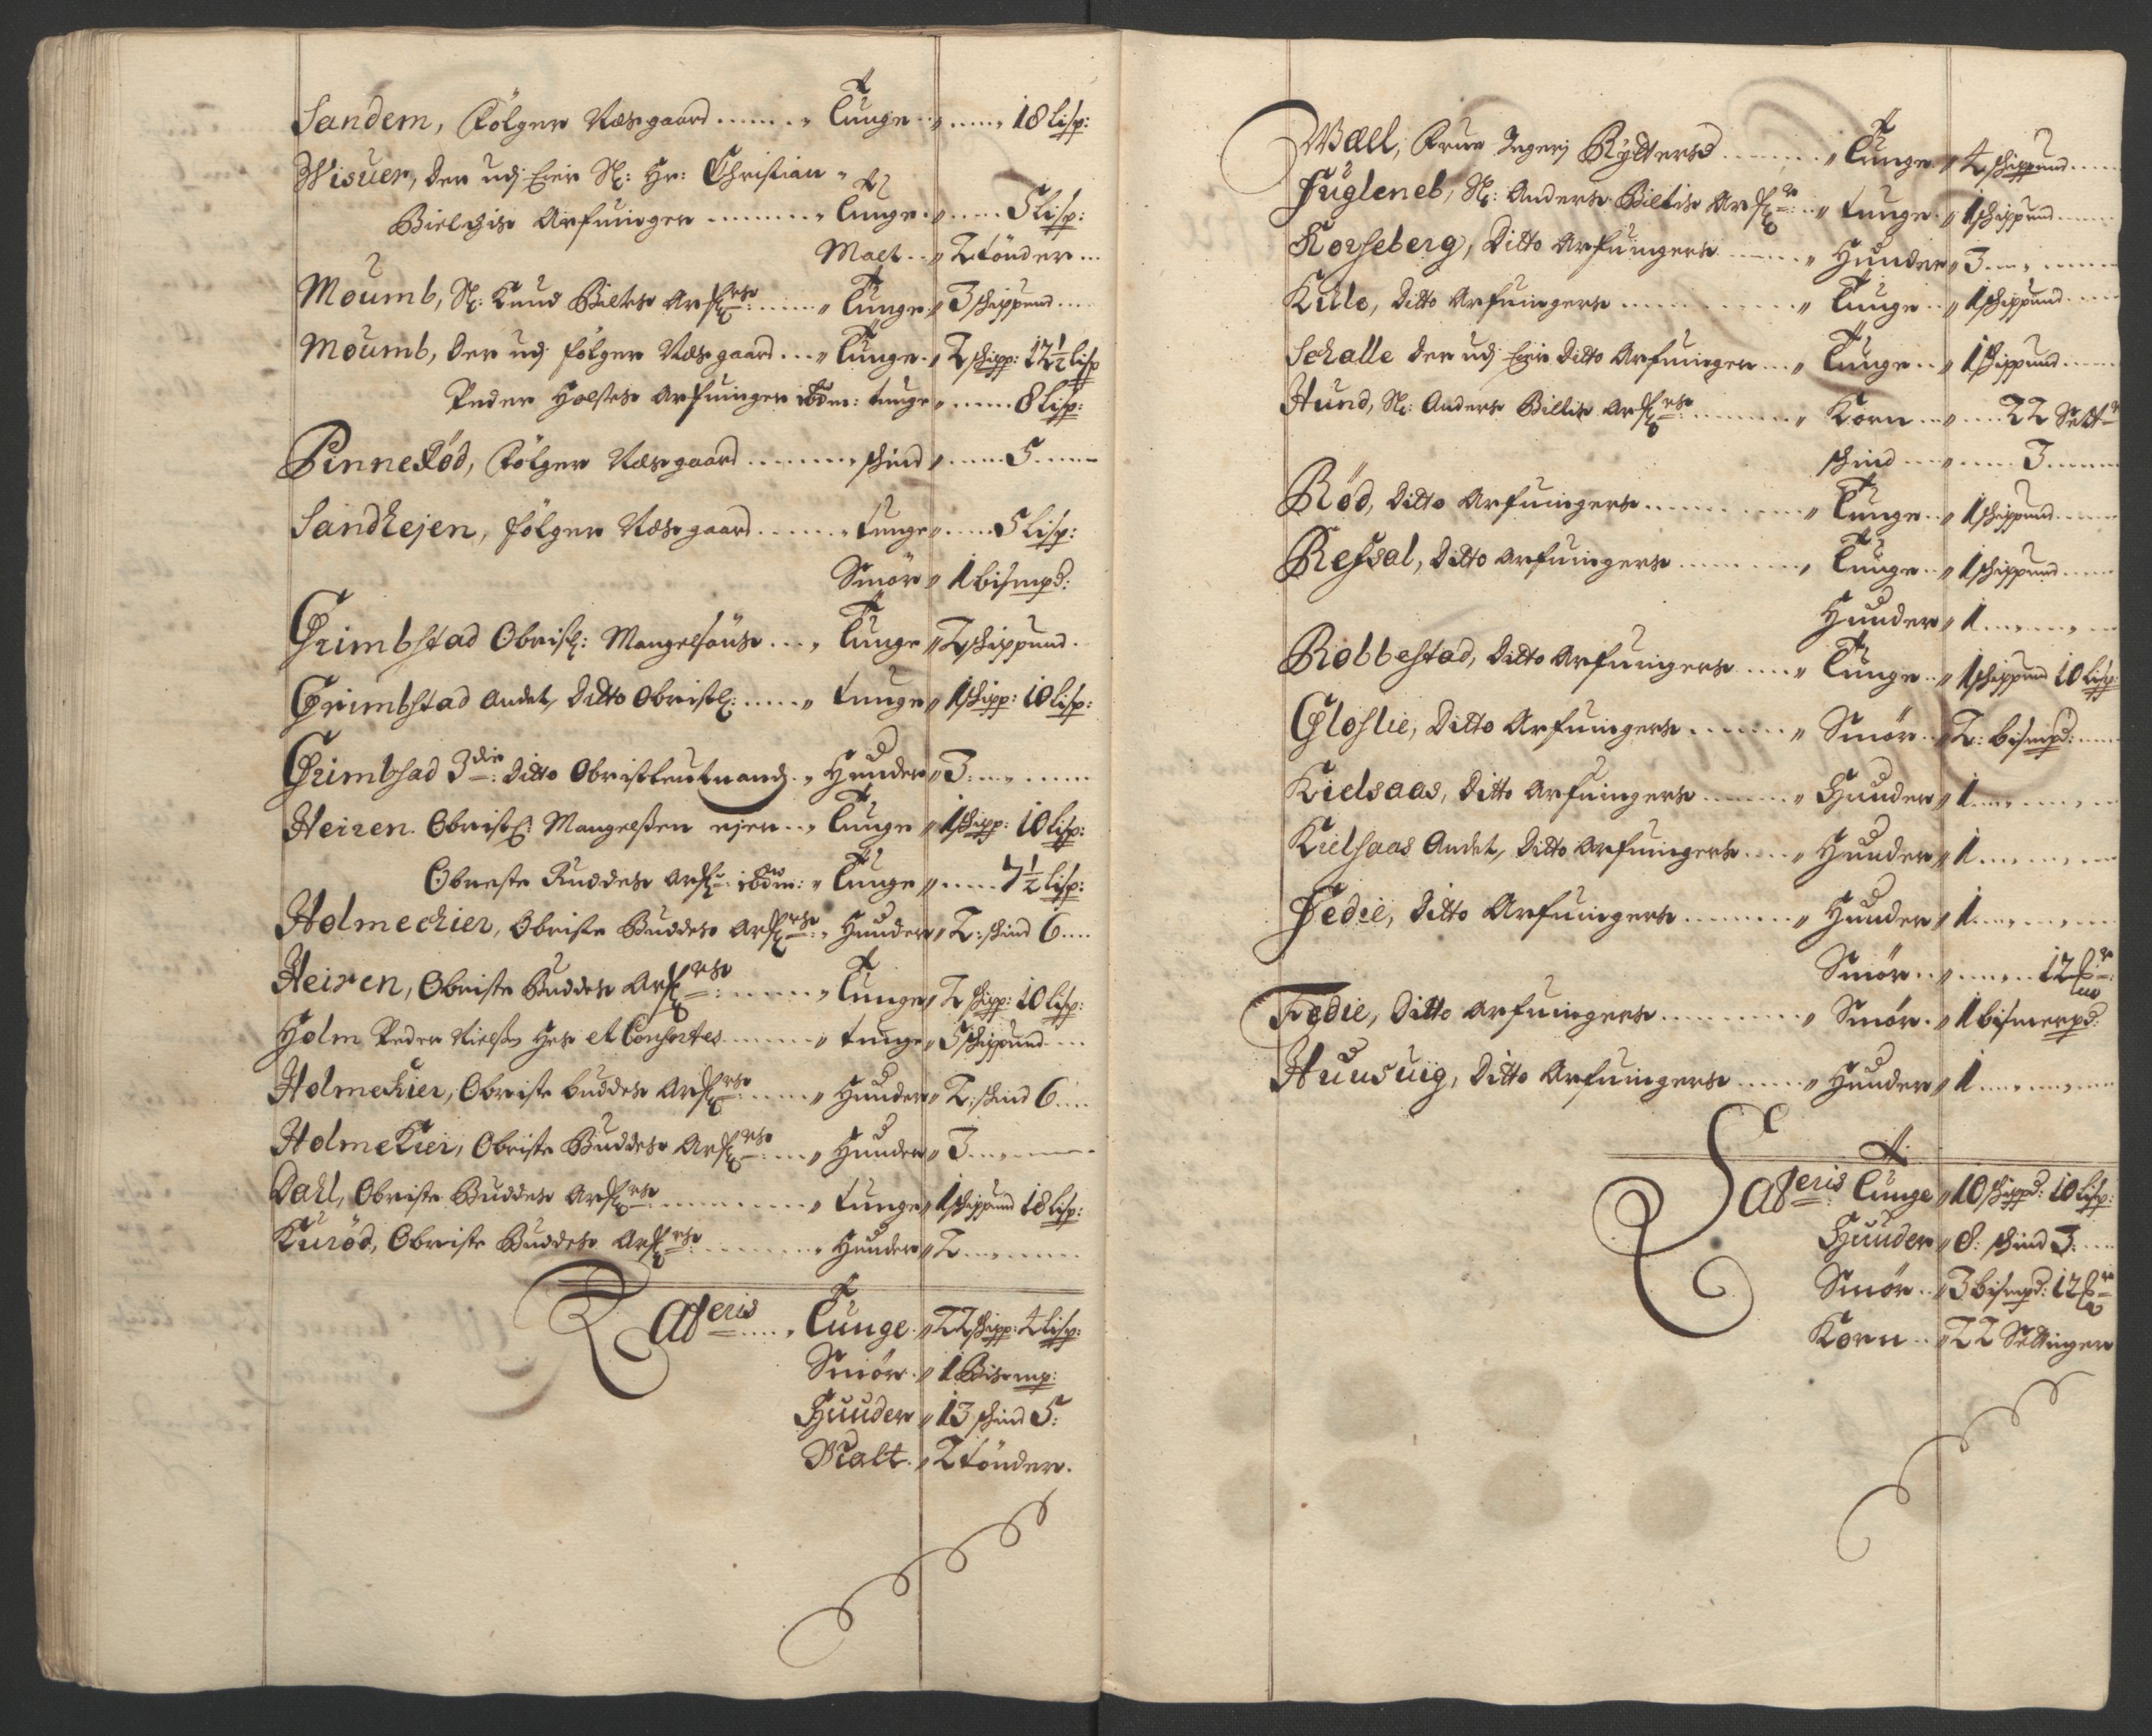 Sandem, Følger Næsgaard ....... " Tunge " ..... 18 lisp:
Wisuer, der udj Eier Sl: Hr: Christian "
Bielchis Arfuinger ......... " Tunge " ..... 5 lisp:
Malt .. " 2 tönder ...
Moumb, Sl: Knud Biltes Arf:rs ...... " Tunge " 3 schippund ....
Moumb, der udj følger Næsgaard ... " Tunge " 2 schipp: 12½ lisp
Peder Holstes Arfuinger ibdm: tunge " ..... 8 lisp:
Pinneröd, Følger Næsgaard ......... schind " ..... 5 ......
Sandhejen, følger Næsgaard ....... " tunge " ..... 5 lisp:
Smör " 1 bismpd:
Grimbstad Obristl: Mangelsöns .... " Tunge " 2 schippund ..
Grimbstad Andet, Ditto Obristl: ..... " tunge " 1 schipp: 10 lisp:
Grimbsad 3die: Ditto Obristleutnand .. " Huuder " 3 .........
Heiren. Obristl: Mangelsen ejer ... " Tunge " 1 schipp: 10 lisp:
Obriste Buddes Arf: ibdm: " Tunge " ..... 7½ lisp:
Holmechier, Obriste Buddes Arf:rs: " Huuder " 2: schind 6 ....
Heiren, Obriste Buddes Arf:rs: ....... " Tunge " 2 schipp: 10 lisp:
Holm Peder Nielsen Hes et Consortes ........ " tunge " 5 schippund ....
Holmechier, Obriste buddes Arf:rs ....... " Huuder " 2: schind 6 ....
HolmeKier, Obriste Buddes Arf:rs .... " Huuder " 3 .........
Dahl, Obriste Buddes Arf:rs ............ " tunge " 1 schippund 18 lisp:
Kuröd, Obriste Buddes Arf:rs .......... " Huuder " 2 .........
Lateris ..... " Tunge " 22 schipp: 4 lisp:
Smör " 1 Bismp:
Huuder " 13 schind 5:
Malt " 2 tönder.
Wæll, Frue Ingerj Rytters ......... " Tunge " 4 schippund .....
Fugleneb, Sl: Anders Biltis Arf:rs .. " tunge " 1 schippund ......
Korseberg, Ditto Arfuingers ....... " Huuder " 3 .........
Kihle, Ditto Arfuingers ............. " Tunge " 1 schippund .....
Schalle der udj Eier Ditto Arfuinger ... " Tunge " 1 schippund ......
Hund, Sl: Anders Billis Arf:rs ......... " Korn .... " .... 22 Sett:r
schind .... " ..... 3 ......
Röd, Ditto Arfuingers ............ " Tunge " 1 schippund ......
Refsal, Ditto Arfuingers ......... " Tunge " 1 schippund .....
Huuder " 1 .........
Robbestad, Ditto Arfuingers ..... " Tunge " 1 schippund 10 lisp:
Gloslie, Ditto Arfuingers ....... " Smör .. " 2: bismpd: ....
Kielsaas, Ditto Arfuingers ....... " Huuder " 1 .........
Kielsaas Andet, Ditto Arfuingers .... " Huuder " 1 .........
Fedie, Ditto Arfuingers ........ " Huuder " 1 .........
Smör .. " ..... 12
Fedie, Ditto Arfuingers .......... " Smör . " 1 bismerpd:
Huusuig, Ditto Arfuingers ...... " Huuder " 1 .........
Lateris Tunge " 10 schippd: 10 lisp:
Huuder " 8: schind 3: ....
Smör .. " 3 bismpd: 12
Korn .. " 22 Settinger